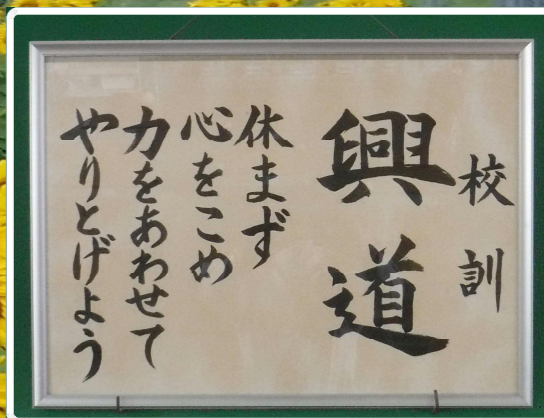 校訓
興道
休まず
心をこめ
力をあわせて
やりとげよう